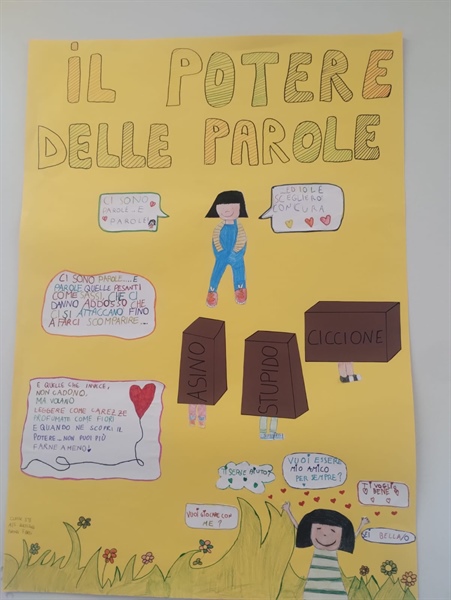 IL POTERE
DELLE PAROLE
CI SONO
PAROLE.. E
PAROLE!
SCEGLIERÒ
CON CURA
CI SONO PAROLE.... E
PAROLE QUELLE PESANTI
COME SASSI, CHE CI
DANNO ADDOSSO CHE
CI SI ATTACCANO FINO
A FARCI SCOMPARIRE...
ASINO
STUPIDO
CICCIONE
E QUELLE CHE INVECE,
NON CADONO,
MA VOLANO
LEGGERE COME CAREZZE
PROFUMATE COME FIORI
E QUANDO NE SCOPRI IL
POTERE...NON PUOI PIÙ
FARNE A MENO!
TI SERVE AIUTO?
VUOI ESSERE
MIO AMICO
PER SEMPRE?
TI VOGLIO
BENE
VUOI GIOCARE CON
ME?
SEI BELLISSIMO